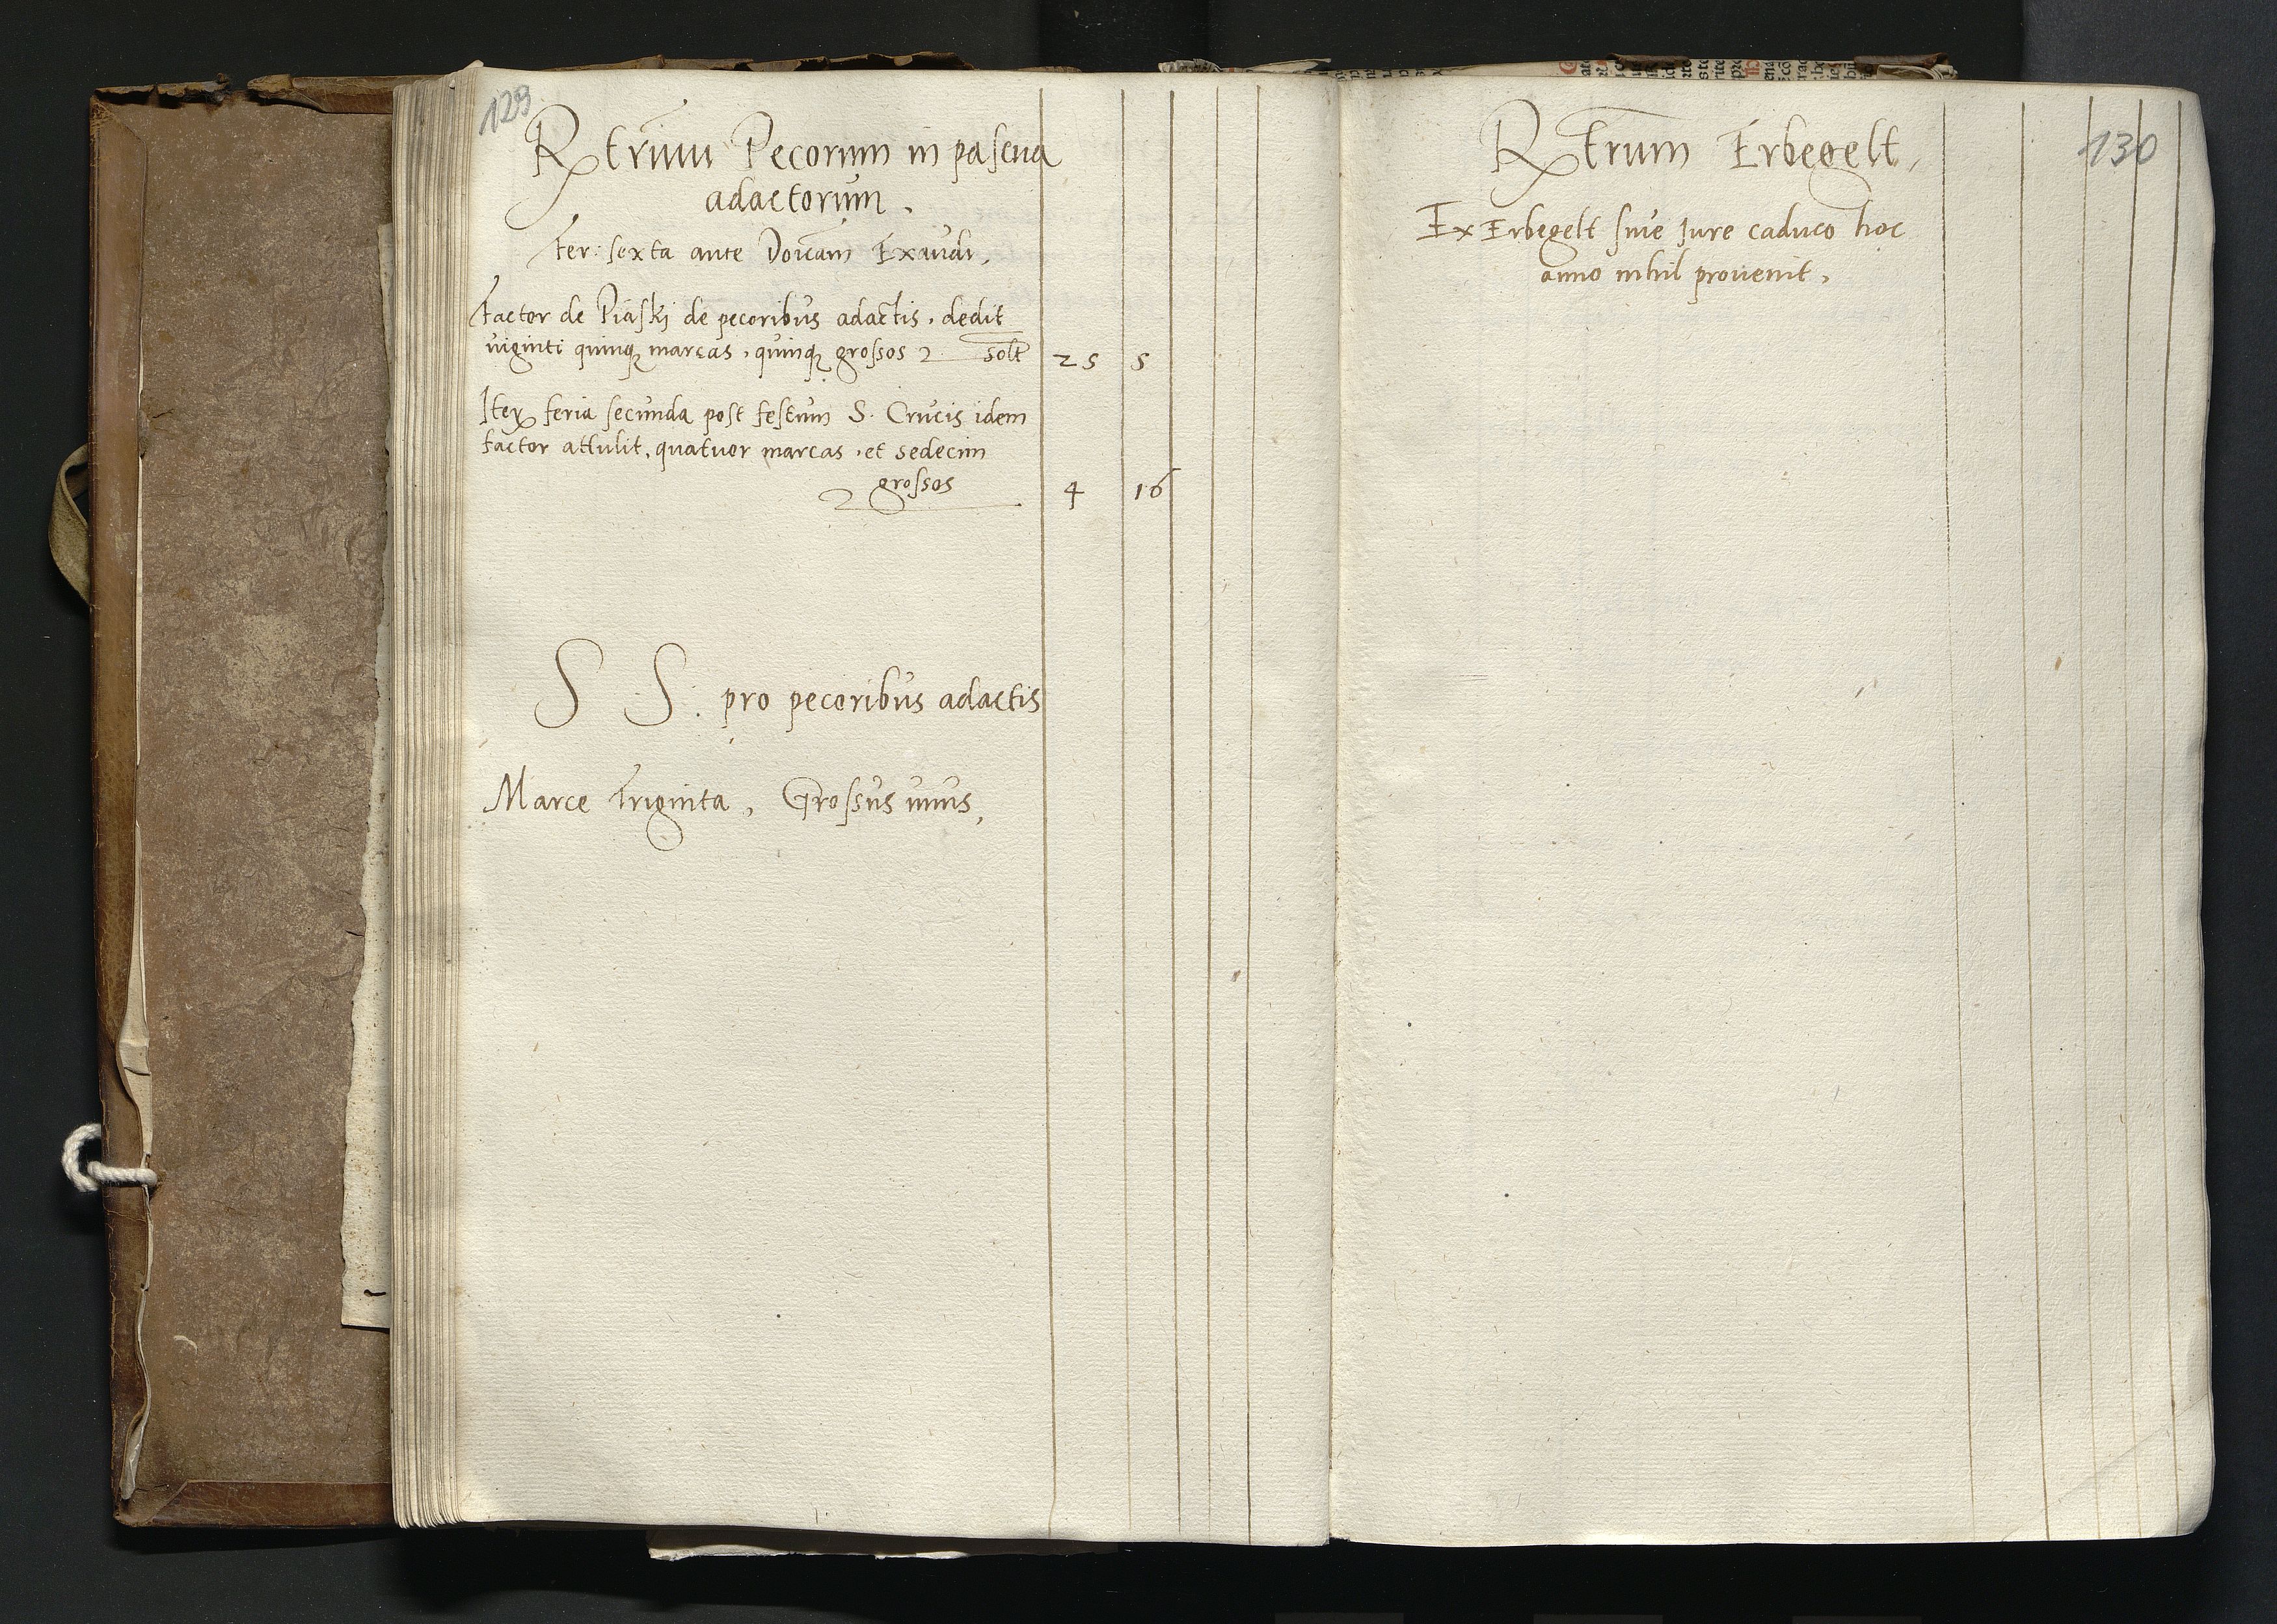 129
Rtrum Pecorum in pascua
adactorum.
Fer: sexta ante Doicam Exaudi,
Factor de Piaski de pecoribus adactis, dedit
uiginti quinq marcas, quinq grossos 2 solt 25 5
Item feria secunda post festum S. Crucis idem
factor attulit, quatuor marcas, et sedecim
grossos 4 16
S S: pro pecoribus adactis
Marce Triginta, Grossus unus,
130
Rtrum Erbegelt,
Ex Erbegelt siue Jure caduco hoc
anno nihil prouenit,